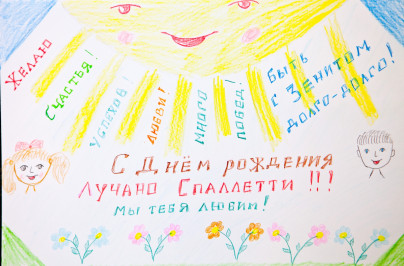 Желаю
Счастья!
успехов!
любви!
много
побед!
быть
с Зенитом
долго-долго!
С Днём рождения
Лучано Спаллетти!!!
мы тебя любим!